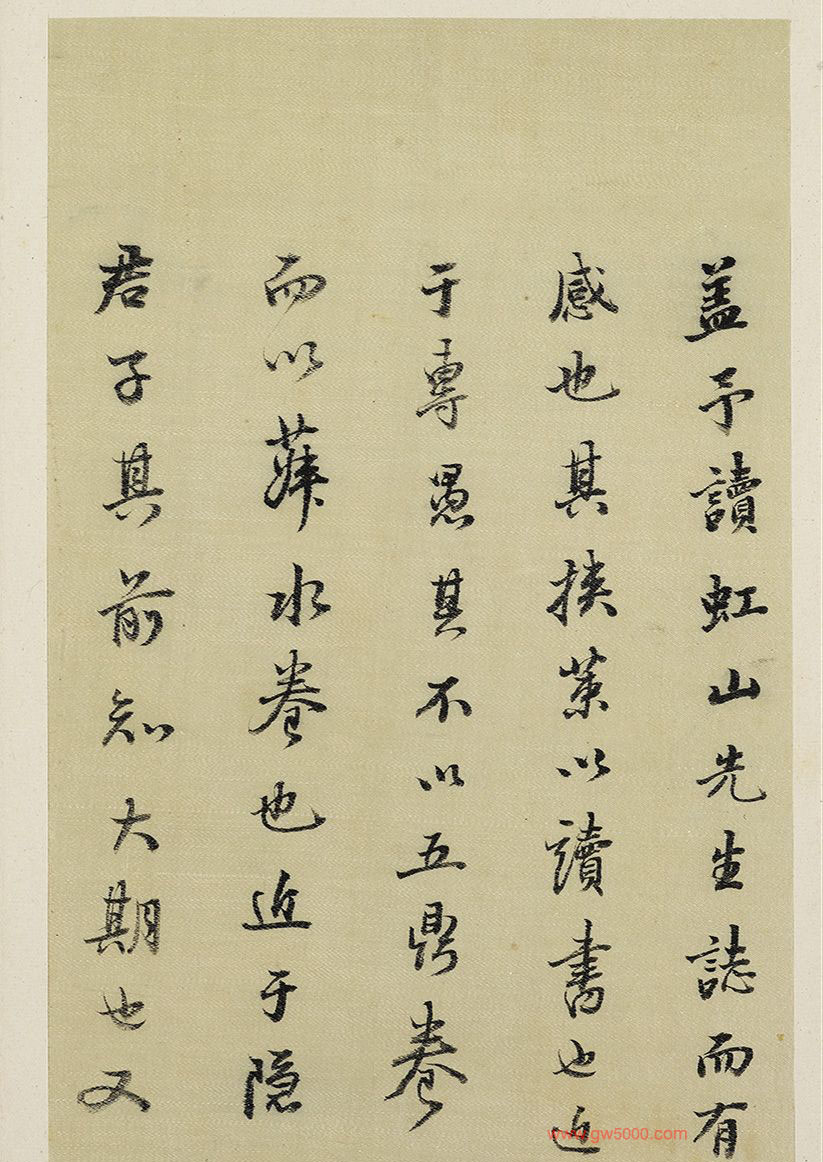 盖予讀虹山先生誌而有
感也其挾策以讀書也近
于專愚其不以五鼎養
而以菽水養也近于隐
君子其前知大期也又
www.gw5000.com